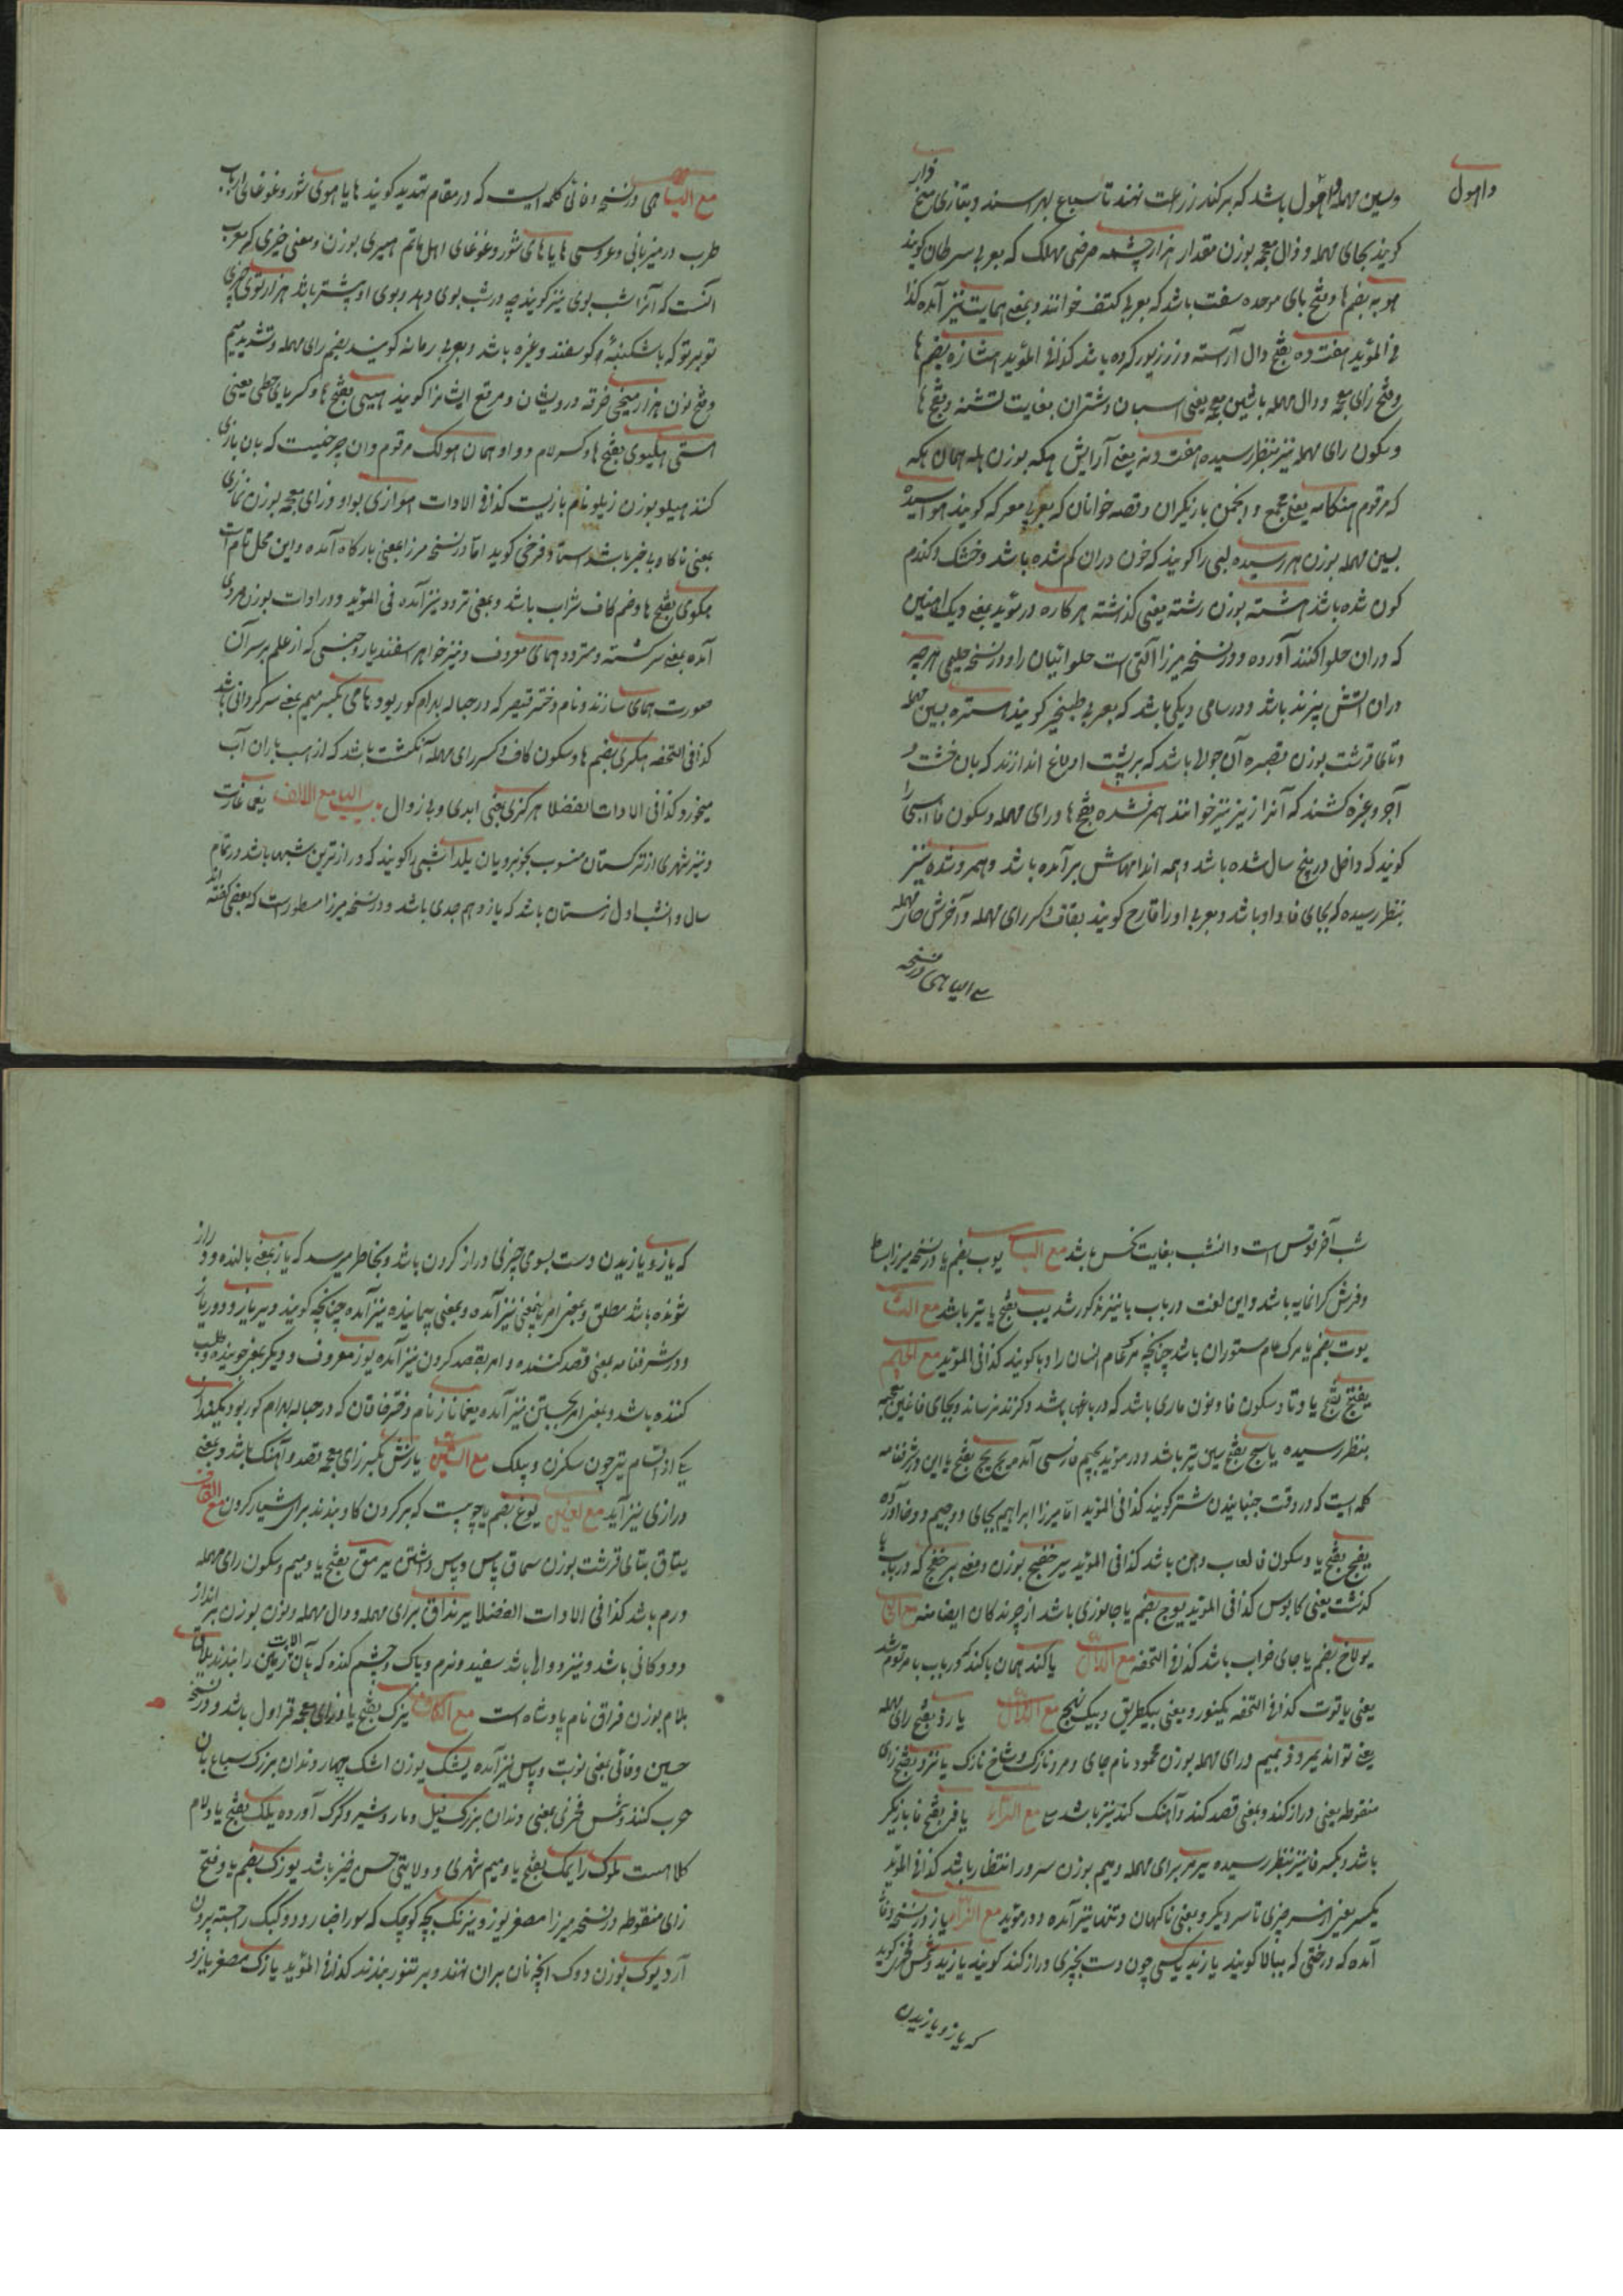 داهول
وسین مهمله داهول باشد که بر کنار زراعت نهند تا سباع بهراسند و بتازی مخ
کویند بجای مهمله و ذال معجمه بوزن مقدار هزارچشمه مرضی مهلک که بعربی سرطان کویند
هوبه بضم ها و فتح بای موحده سفت باشد که بعربی کتف خوانند و بمعنی حمایت نیز آمده کذا
فی المؤید هفت ده بفتح دال آراسته و زر زیور کرده باشد کذا فی المؤید هشازه بضم ها
و فتح زای معجمه و دال مهمله باشین معجمه یعنی اسبان و شتران بغایت تشنه و بفتح ها
و سکون رای مهمله نیز بنظر رسیده هفت و نه یعنی آرایش هکه بوزن هله همان هکه
که مرقوم هنکامه یعنی مجمع و انجمن بازیکران و قصه خوانان که بعربی معرکه کویند هواسیده
بسین مهمله بوزن هررسیده لبی را کویند که خون دران کم شده باشد و خشک و کندم
کون شده باشد هشته بوزن رشته یعنی کذشته هرکاره در مؤید بمعنی دیک آهنین
که دران حلوا کنند آورده و در نسخه میرزا آلتی است حلوائیان را و در نسخه حلیمی هرچه
دران آتش پزند باشد و در سامی دیکی باشد که بعربی طنجیر کویند استره بسین مهمله
و تای قرشت بوزن مقبره آن جولا باشد که بر پشت اولاغ اندازند که بان خشت و
آجر و غیره کشند که آنرا زیزنیز خوانند همرفشده بفتح ها و رای مهمله و سکون فا اسبی را
کویند که داخل در پنج سال شده باشد و همه اندامهاش برآمده باشد و همروشده نیز
بنظر رسیده که بجای فا واو باشد و بعربی اورا قارح کویند بقاف و کسر رای مهمله و آخرش حای مهمله
مع الیا هی در نسخه
مع الیا هی در نسخه وفائی کلمه ایست که در مقام تهدید کویند هایاهوی شور و غوغای ارباب
طرب در میزبانی و عروسی هایاهای شور و غوغای اهل ماتم هیری بوزن و معنی خیری که معرب
آنست که آنرا شب بوی نیز کویند چه در شب بوی دهد و بوی او بیشتر باشد هزارتوی چیزی
توبرتو که باشکنبهٔ کوسفند و غیره باشد و بعربی رمانه کویند بضم رای مهمله و تشدید میم
و فتح نون هزارمیخی خرقه درویشان و مرقع ایشانرا کویند هیبی بفتح ها و کسر یای حطی یعنی
هستی هلیوی بفتح ها و کسر لام و واو همان هولک مرقوم و آن چرخیست که بان بازی
کنند هیلو بوزن زیلو نام بازیست کذا فی الادات هوازی بواو و زای معجمه بوزن نمازی
بمعنی ناکاه و بیخبر باشد استاد فرخی کوید اما در نسخه میرزا بمعنی بارکاه آمده و این محل تامل است
هکوی بفتح ها و ضم کاف شراب باشد و بمعنی تردد نیز آمده فی المؤید و در ادات بوزن هروی
آمده بمعنی سرکشته و متردد همای معروف و نیز خواهر اسفندیار و جنسی که از علم بر سر آن
صورت همای سازند و نام دختر قیصر که در حباله بهرام کور بود هامی بکسر میم بمعنی سرکردانی باشد
کذا فی التحفه هکری بضم ها و سکون کاف و کسر رای مهمله آنکشت باشد که از اسب باران آب
میخورد کذا فی الادات الفضلا هرکزی یعنی ابدی و بی زوال باب الیا مع الالف یغما غارت
و نیز شهری از ترکستان منسوب بخوبرویان یلدا شبی را کویند که درازترین شبها باشد در تمام
سال و آنشب اول زمستان باشد که یازدهم جدی باشد و در نسخه میرزا مسطور است که بعضی کفته اند
شب آخر قوس است و آنشب بغایت نحس باشد مع البا یوب بضم یا در نسخه میرزا بساط
و فرش کرانمایه باشد و این لغت در باب با نیز مذکور شد یب بفتح یا تیر باشد مع التا
یوت بضم یا مرک عام ستوران باشد چنانچه مرک عام انسان را وبا کویند کذا فی المؤید مع الجیم
یفتنج بفتح یا و تا و سکون فا و نون ماری باشد که در باغها باشد و کزند نرساند و بجای فا غین معجمه
بنظر رسیده یاسج بفتح سین تیر باشد و در مؤید بجیم فارسی آمده یخ یخ بفتح یا این در شرفنامه
کلمه ایست که در وقت جنبانیدن شتر کویند کذا فی المؤید اما میرزا ابراهیم بجای دو جیم دو خا آورده
یفج بفتح یا و سکون فا لعاب دهن باشد کذا فی المؤید یرخفج بوزن و معنی برخفج که در باب با
کذشت یعنی کابوس کذا فی المؤید یوج بضم یا جانوری باشد از چرندکان ایضا منه مع الخا
یولاخ بضم یا جای خراب باشد کذا فی التحفه مع الدال یاکند همان باکند که در باب با مرقوم شد
یعنی یاقوت کذا فی التحفه یکنورد یعنی بیکطریق و بیک نهج مع الدال یارد بفتح رای مهمله
یعنی تواند یمرود بمیم و رای مهمله بوزن محمود نام جای و مرد نازک و شاخ نازک یازد بفتح زای
منقوطه یعنی دراز کند و بمعنی قصد کند و آهنک کند نیز باشد مع الراء یافر بفتح فا بازیکر
باشد و بکسر فا نیز بنظر رسیده یرمر برای مهمله و میم بوزن سرور انتظار باشد کذا فی المؤید
یکسر یعنی از سر چیزی تا سر دیکر و بمعنی ناکهان و تنها نیز آمده در مؤید مع الزا یاز در نسخه وفائی
آمده که درختی که ببالا کویند یازید کسی چون دست بچیزی دراز کند کویند یازید و شمس فخری کوید
که یاز و یازیدن
که یاز و یازیدن دست بسوی چیزی دراز کردن باشد و بخاطر میرسد که یاز بمعنی بالنده و دراز
شونده باشد مطلق و بمعنی امر باینمعنی نیز آمده و بمعنی پیماینده نیز آمده چنانچه کویند دیریاز و دوریاز
و در شرفنامه بمعنی قصد کننده و امر بقصد کردن نیز آمده یوز معروف و دیکر بمعنی جوینده و طلب
کننده باشد و بمعنی امر بجستن نیز آمده یغماناز نام دختر خاقان که در حباله بهرام کور بود یکیغداز
یکی از اقسام تیر چون سکزن و بیلک مع الشین یازش بکسر زای معجمه قصد و آهنک باشد و بمعنی
درازی نیز آید مع الغین یوغ بضم یا چوبیست که بر کردن کاو بندند برای شیار کردن مع القاف
یتاق بتای قرشت بوزن سماق پاس و پاس داشتن یرمق بفتح یا و میم و سکون رای مهمله
درم باشد کذا فی الادات الفضلا یرنداق برای مهمله و دال مهمله و نون بوزن برانداز
رودکانی باشد و نیز دوالها باشد سفید و نرم و پاک و چشم کنده که بآن آلات زین را بندند یلاق
بلام بوزن فراق نام پادشاه است مع الکاف یزک بفتح یا و زای معجمه قراول باشد و در نسخه
حسین وفائی بمعنی نوبت و پاس نیز آمده یشک بوزن اشک چهار دندان بزرک سباع که بآن
حرب کنند و شمس فخری بمعنی دندان بزرک فیل و مار و شیر و کرک آورده یلک بفتح یا و لام
کلاهست ملوک را یمک بفتح یا و میم شهری و ولایتی حسن خیز باشد یوزک بضم یا و فتح
زای منقوطه در نسخه میرزا مصغر یوز و نیز تک بچه کوچک که سوراخها رود و کبک را جسته بیرون
آرد یوک بوزن دوک آنچه نان بران نهند و بر تنور بندند کذا فی المؤید یازک مصغر یاز و